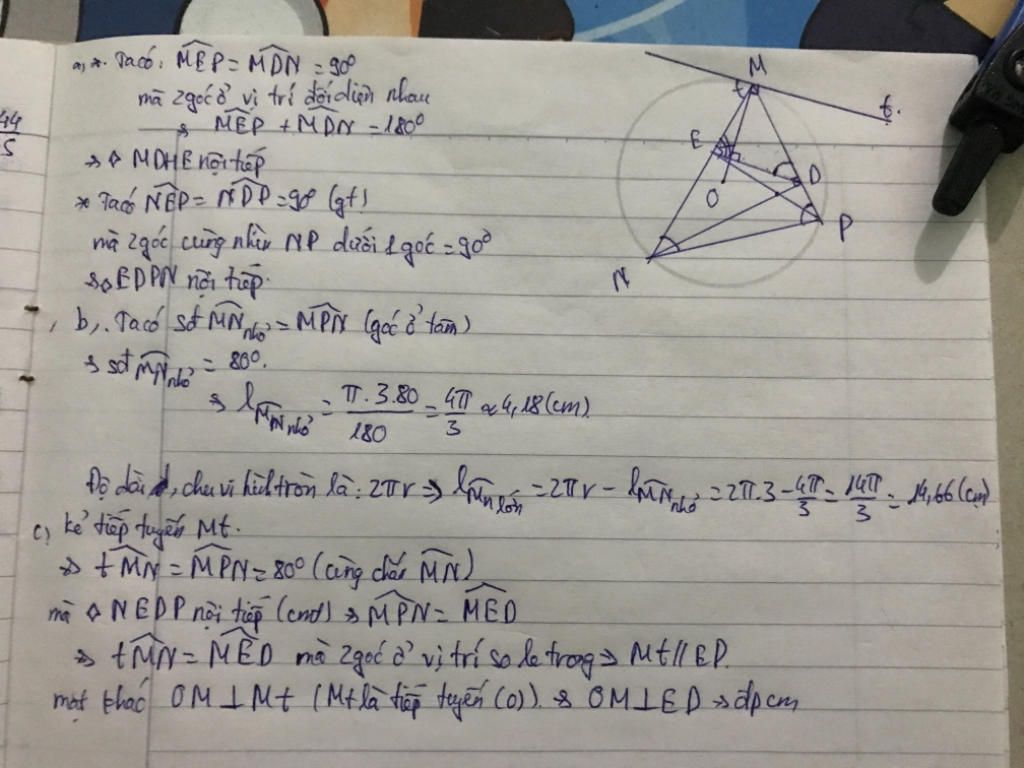 44
5
a, *. Ta có: MEP = MDN = 90°
mà 2 góc ở vị trí đối diện nhau
⇒ MEP + MDN = 180°
⇒ ◇ MDHE nội tiếp
* Ta có NEP = NDP = 90° (gt)
mà 2 góc cùng nhìn NP dưới 1 góc = 90°
⇒ ◇ EDPN nội tiếp.
b, . Ta có sđ MN nhỏ = MPN (góc ở tâm)
⇒ sđ MN nhỏ = 80°.
⇒ l MN nhỏ = π.3.80/180 = 4π/3 ≈ 4,18 (cm)
Độ dài, chu vi hình tròn là: 2πr ⇒ l Mn lớn = 2πr - l MN nhỏ = 2π.3 - 4π/3 = 14π/3 = 14,66 (cm)
c) kẻ tiếp tuyến Mt.
⇒ tMN = MPN = 80° (cùng chắn MN)
mà ◇ NEDP nội tiếp (cmt) ⇒ MPN = MED
⇒ tMN = MED mà 2 góc ở vị trí so le trong ⇒ Mt // EP.
mặt khác OM ⊥ Mt (Mt là tiếp tuyến (O)). ⇒ OM ⊥ ED ⇒ đpcm
M
t
t.
E
D
O
P
N